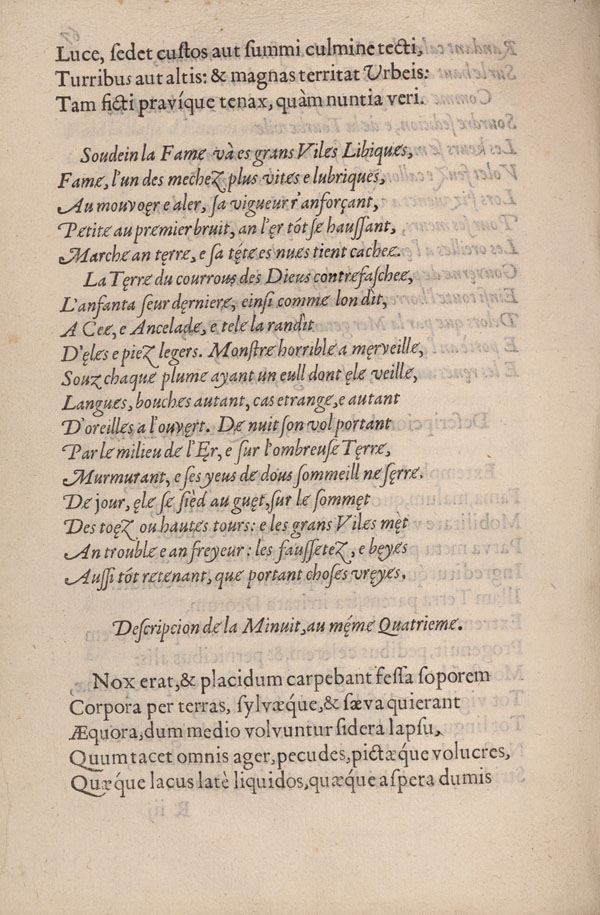 Luce, ſedet cuſtos aut ſummi culmine tecti,
Turribus aut altis: & magnas territat Vrbeis:
Tam ficti pravíque tenax, quàm nuntia veri.
Soudein la Fame và es grans Viles Libiques,
Fame, l'un des mechez plus vites e lubriques,
Au mouvoęr e aler, ſa vigueur r'anforçant,
Petite au premier bruit, an l'ęr tót ſe hauſſant,
Marche an tęrre, e ſa téte es nues tient cachee.
La Tęrre du courrous des Dieus contrefaſchee,
L'anfanta ſeur dęrniere, einſi comme lon dìt,
A Cee, e Ancelade, e tele la randìt
D'ęles e piez legers. Monſtre horrible a męrveille,
Souz chaque plume ayant un eull dont ęle veille,
Langues, bouches autant, cas etrange, e autant
D'oreilles a l'ouvęrt. De nuit ſon vol portant
Par le milieu de l'Ęr, e ſur l'ombreuſe Tęrre,
Murmurant, e ſes yeus de dous ſommeill ne ſęrre.
De jour, ęle ſe ſièd au guęt, ſur le ſommęt
Des toęz ou hautes tours: e les grans Viles męt
An trouble e an freyeur: les fauſſetez, e bęyes
Auſſi tót retenant, que portant choſes vręyes.
Deſcripcion de la Minuit, au méme Quatrieme.
Nox erat, & placidum carpebant feſſa ſoporem
Corpora per terras, ſylvæque, & ſæva quierant
Æquora, dum medio volvuntur ſidera lapſu,
Quum tacet omnis ager, pecudes, pictæque volucres,
Quæque lacus latè liquidos, quæque aſpera dumis